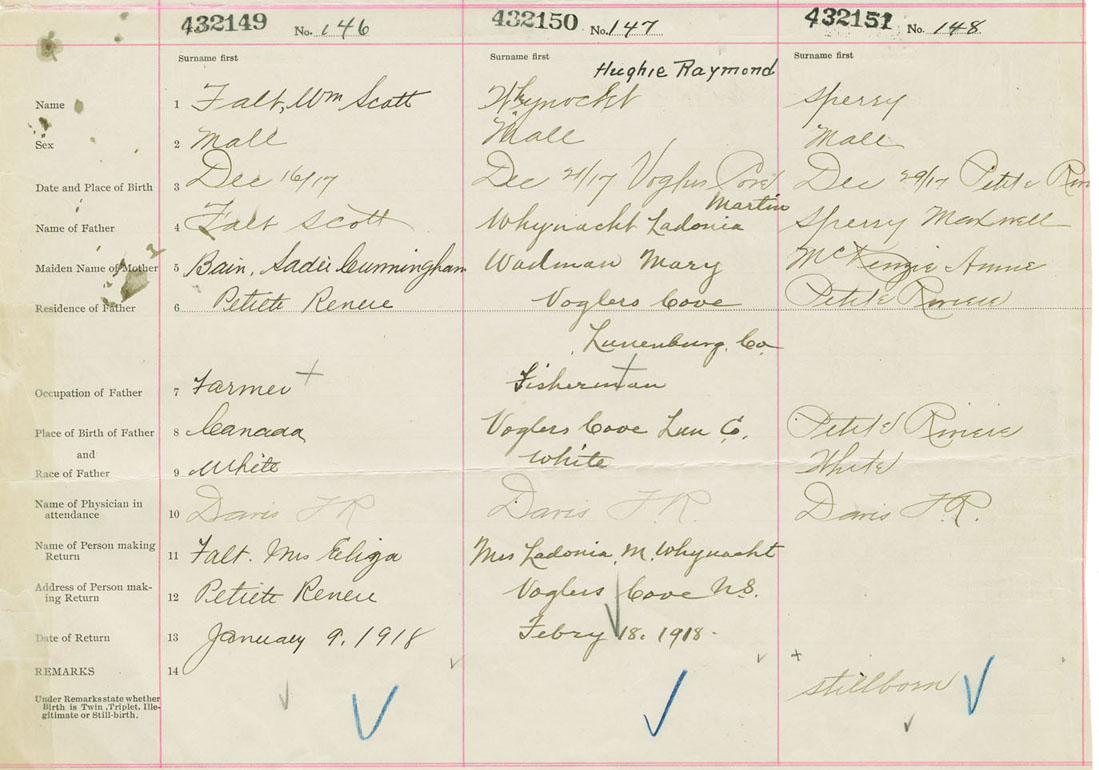 432149 No. 146 432150 No. 147 432151 No. 148
Surname first Surname first Surname first
Hughie Raymond
Name 1 Falt, Wm Scott Whynocht Sperry
Sex 2 Mall Mall Mall
Date and Place of Birth 3 Dec 16/17 Dec 21/17 Voglus Cove Dec 29/17 Petite Riv
Martin
Name of Father 4 Falt Scott Whynacht Ladonia Sperry Maxwell
Maiden Name of Mother 5 Bain, Sadie Cunningham Wadman Mary McKenzie Annie
Residence of Father 6 Petiete Reneie Voglers Cove Petite Riviere
Lunenburg, Co
Occupation of Father 7 Farmer Fisherman
Place of Birth of Father 8 Canada Voglers Cove Lun Co. Petite Riviere
and
Race of Father 9 White White White
Name of Physician in
attendance 10 Davis F R Davis F. R. Davis F. R.
Name of Person making
Return 11 Falt. Mrs Eliza Mrs Ladonia. M. Whynacht
Address of Person mak-
ing Return 12 Petiete Reneie Voglers Cove N.S.
Date of Return 13 January 9, 1918 Febry 18. 1918.
REMARKS 14
stillborn
Under Remarks state whether
Birth is Twin, Triplet, Ille-
gitimate or Still-birth.